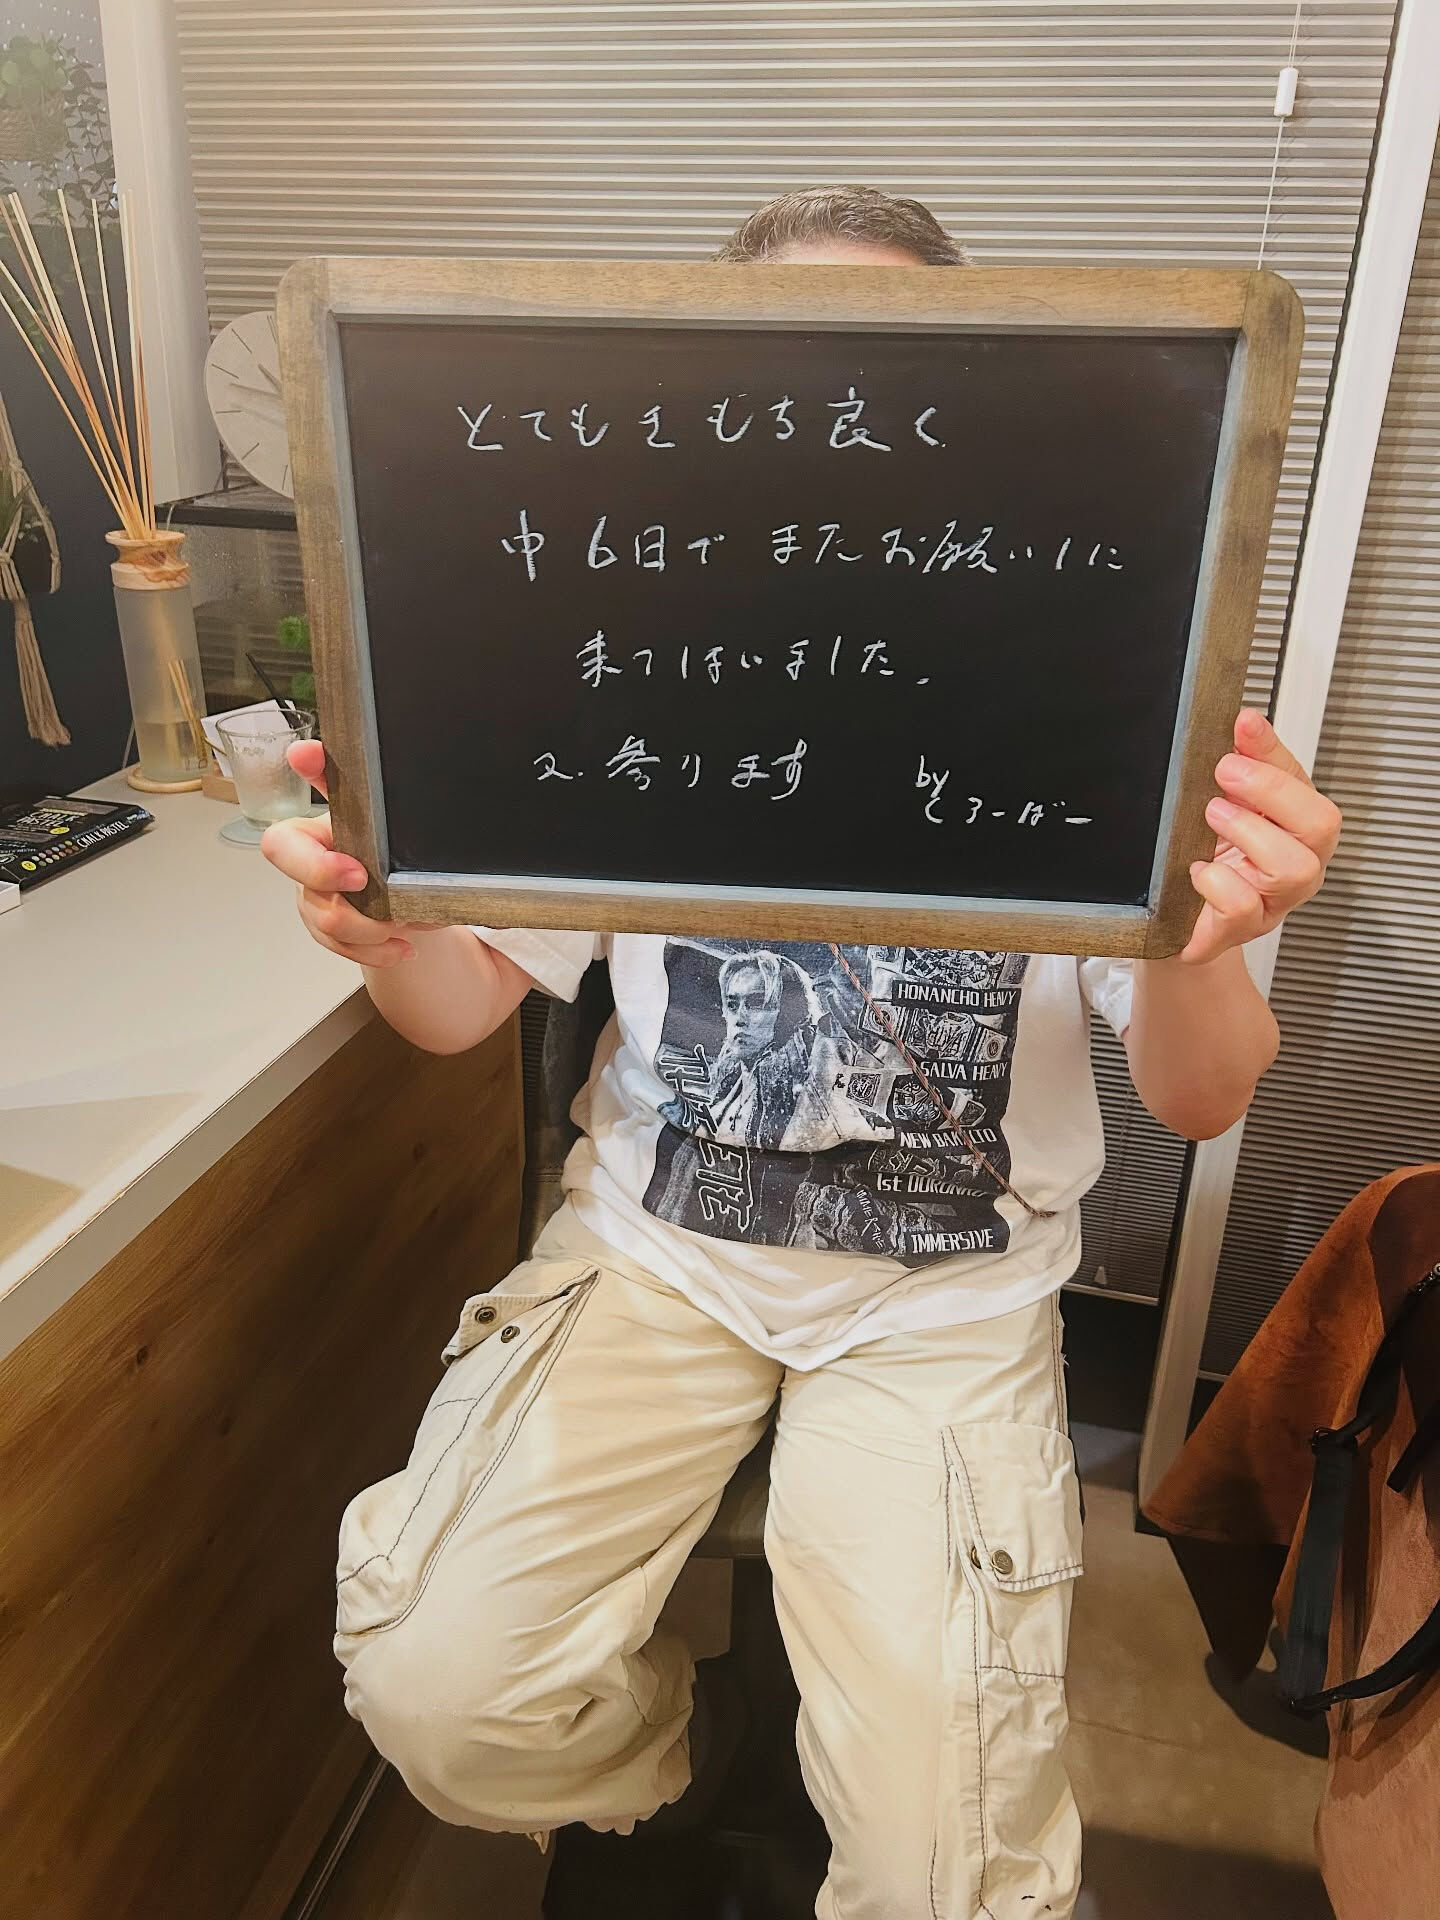 とてもきもち良く
中6日でまたお願いしに
来てしまいました。
又、参ります
by
くろーばー
HONANCHO HEAVY
SALVA HEAVY
NEW BAKALTO
1st DORONKO
IMMERSIVE
CHALK PASTEL